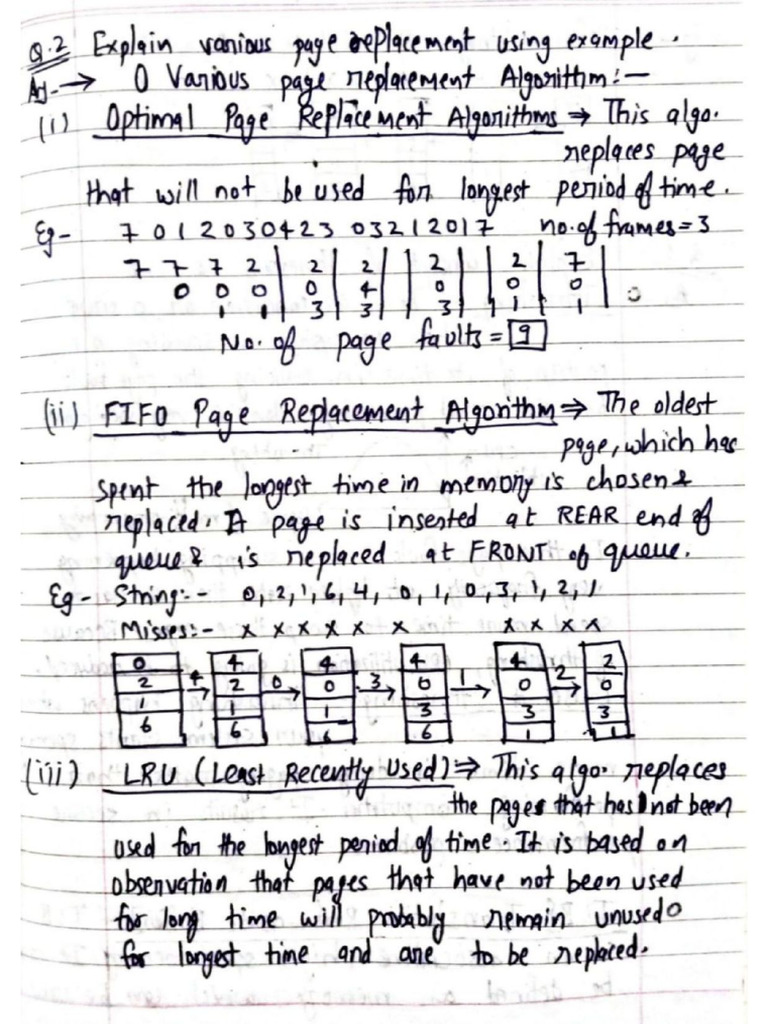 Q.2 Explain various page replacement using example.
Ans- → 0 Various page replacement Algorithm:-
(i) Optimal Page Replacement Algorithms ⇒ This algo.
replaces page
that will not be used for longest period of time.
Eg- 7 0 1 2 0 3 0 4 2 3 0 3 2 1 2 0 1 7 no. of frames = 3
7 7 7 2 | 2 | 2 | 2 | 2 | 7 |
0 0 0 | 0 | 4 | 0 | 0 | 0 |
1 1 | 3 | 3 | 3 | 1 | 1 |
No. of page faults = 9
(ii) FIFO Page Replacement Algorithm ⇒ The oldest
page, which has
spent the longest time in memory is chosen &
replaced. A page is inserted at REAR end of
queue & is replaced at FRONT of queue.
Eg- String:- 0, 2, 1, 6, 4, 0, 1, 0, 3, 1, 2, 1
Misses:- x x x x x x x x x x
0 4 4 4 4 2
2 4→ 2 0→ 0 3→ 0 1→ 0 2→ 0
1 1 1 3 3 3
6 6 6 6 1 1
(iii) LRU (Least Recently Used) ⇒ This algo replaces
the pages that has not been
used for the longest period of time. It is based on
observation that pages that have not been used
for long time will probably remain unused
for longest time and are to be replaced.